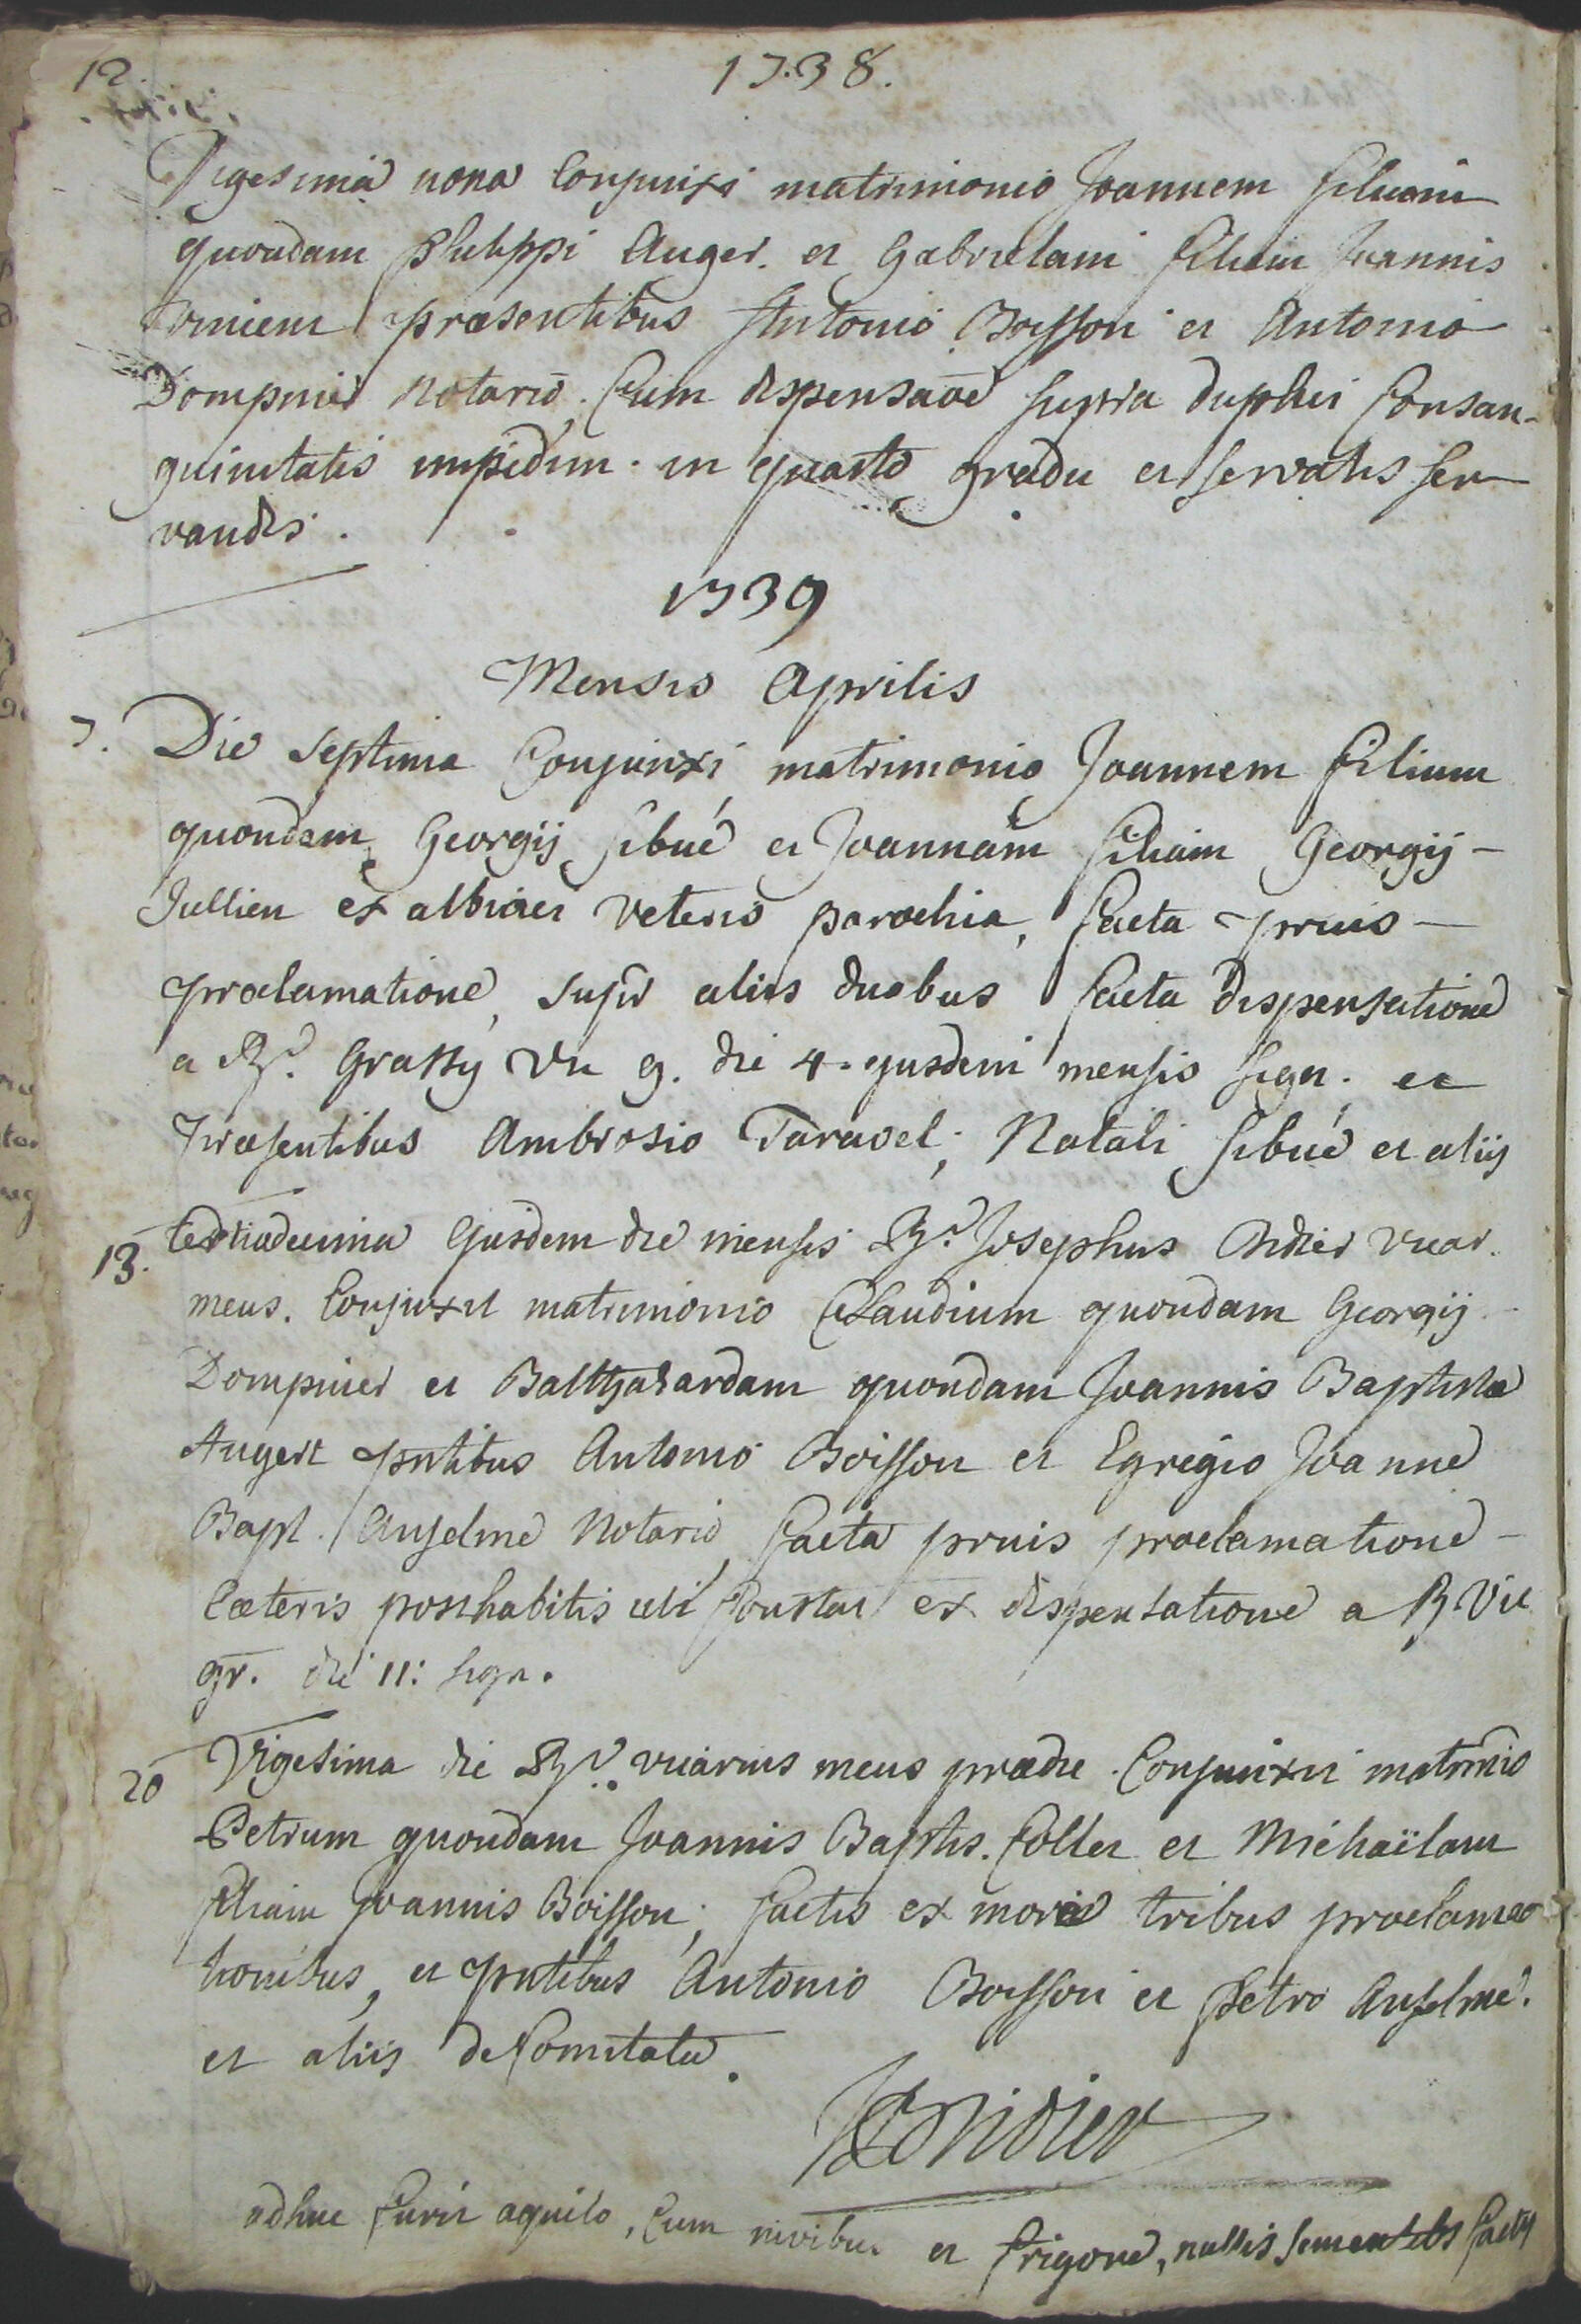 12.
1738.
Vigesima nona Conjunxi matrimonio Joannem filium
quondam philippi Auger. et Gabrielam filiam Joannis
praesentibus Antonio Boisson et Antonio
Dompnier Notario. Cum dispensaōe supra duplici Consan-
guinitatis impedim. in quarto gradu et servatis ser-
vandis.
1739
Mensis Aprilis
7. Die septima Conjunxi matrimonio Joannem filium
quondam Georgij sibué et Joannam filiam Georgij -
Jullien ex albiaci veteris parochia, facta prius -
proclamatione, supr aliis duobus facta dispensatione
a Rd. Grassy Vic g. die 4. ejusdem mensis sign. et
praesentibus Ambrosio Taravel; Natali sibué et aliis
13. tertiadecima Ejusdem die mensis Rd. Josephus Didier vicar.
meus. Conjunxit matrimonio Claudium quondam Georgij
Dompnier et Balthazardam quondam Joannis Baptistae
Augert pntibus Antonio Boisson et Egregio Joanne
Bapt. Anselme Notario, facta prius proclamatione -
Caeteris posthabitis uti Constat ex dispensatione a R Vic
gr. die 11: sign.
20 Vigesima die Rd. vicarius meus praedic. Conjunxit matrimnio
Petrum quondam Joannis Baptis. Collet et Michaëlam
filiam Joannis Boisson; factis ex more tribus proclama
tionibus, et pntibus Antonio Boisson et Petro Anselme.
et aliis de Comitatu.
Didier
adhuc furit aquilo, Cum nivibus et frigore, nullis sementibs factis